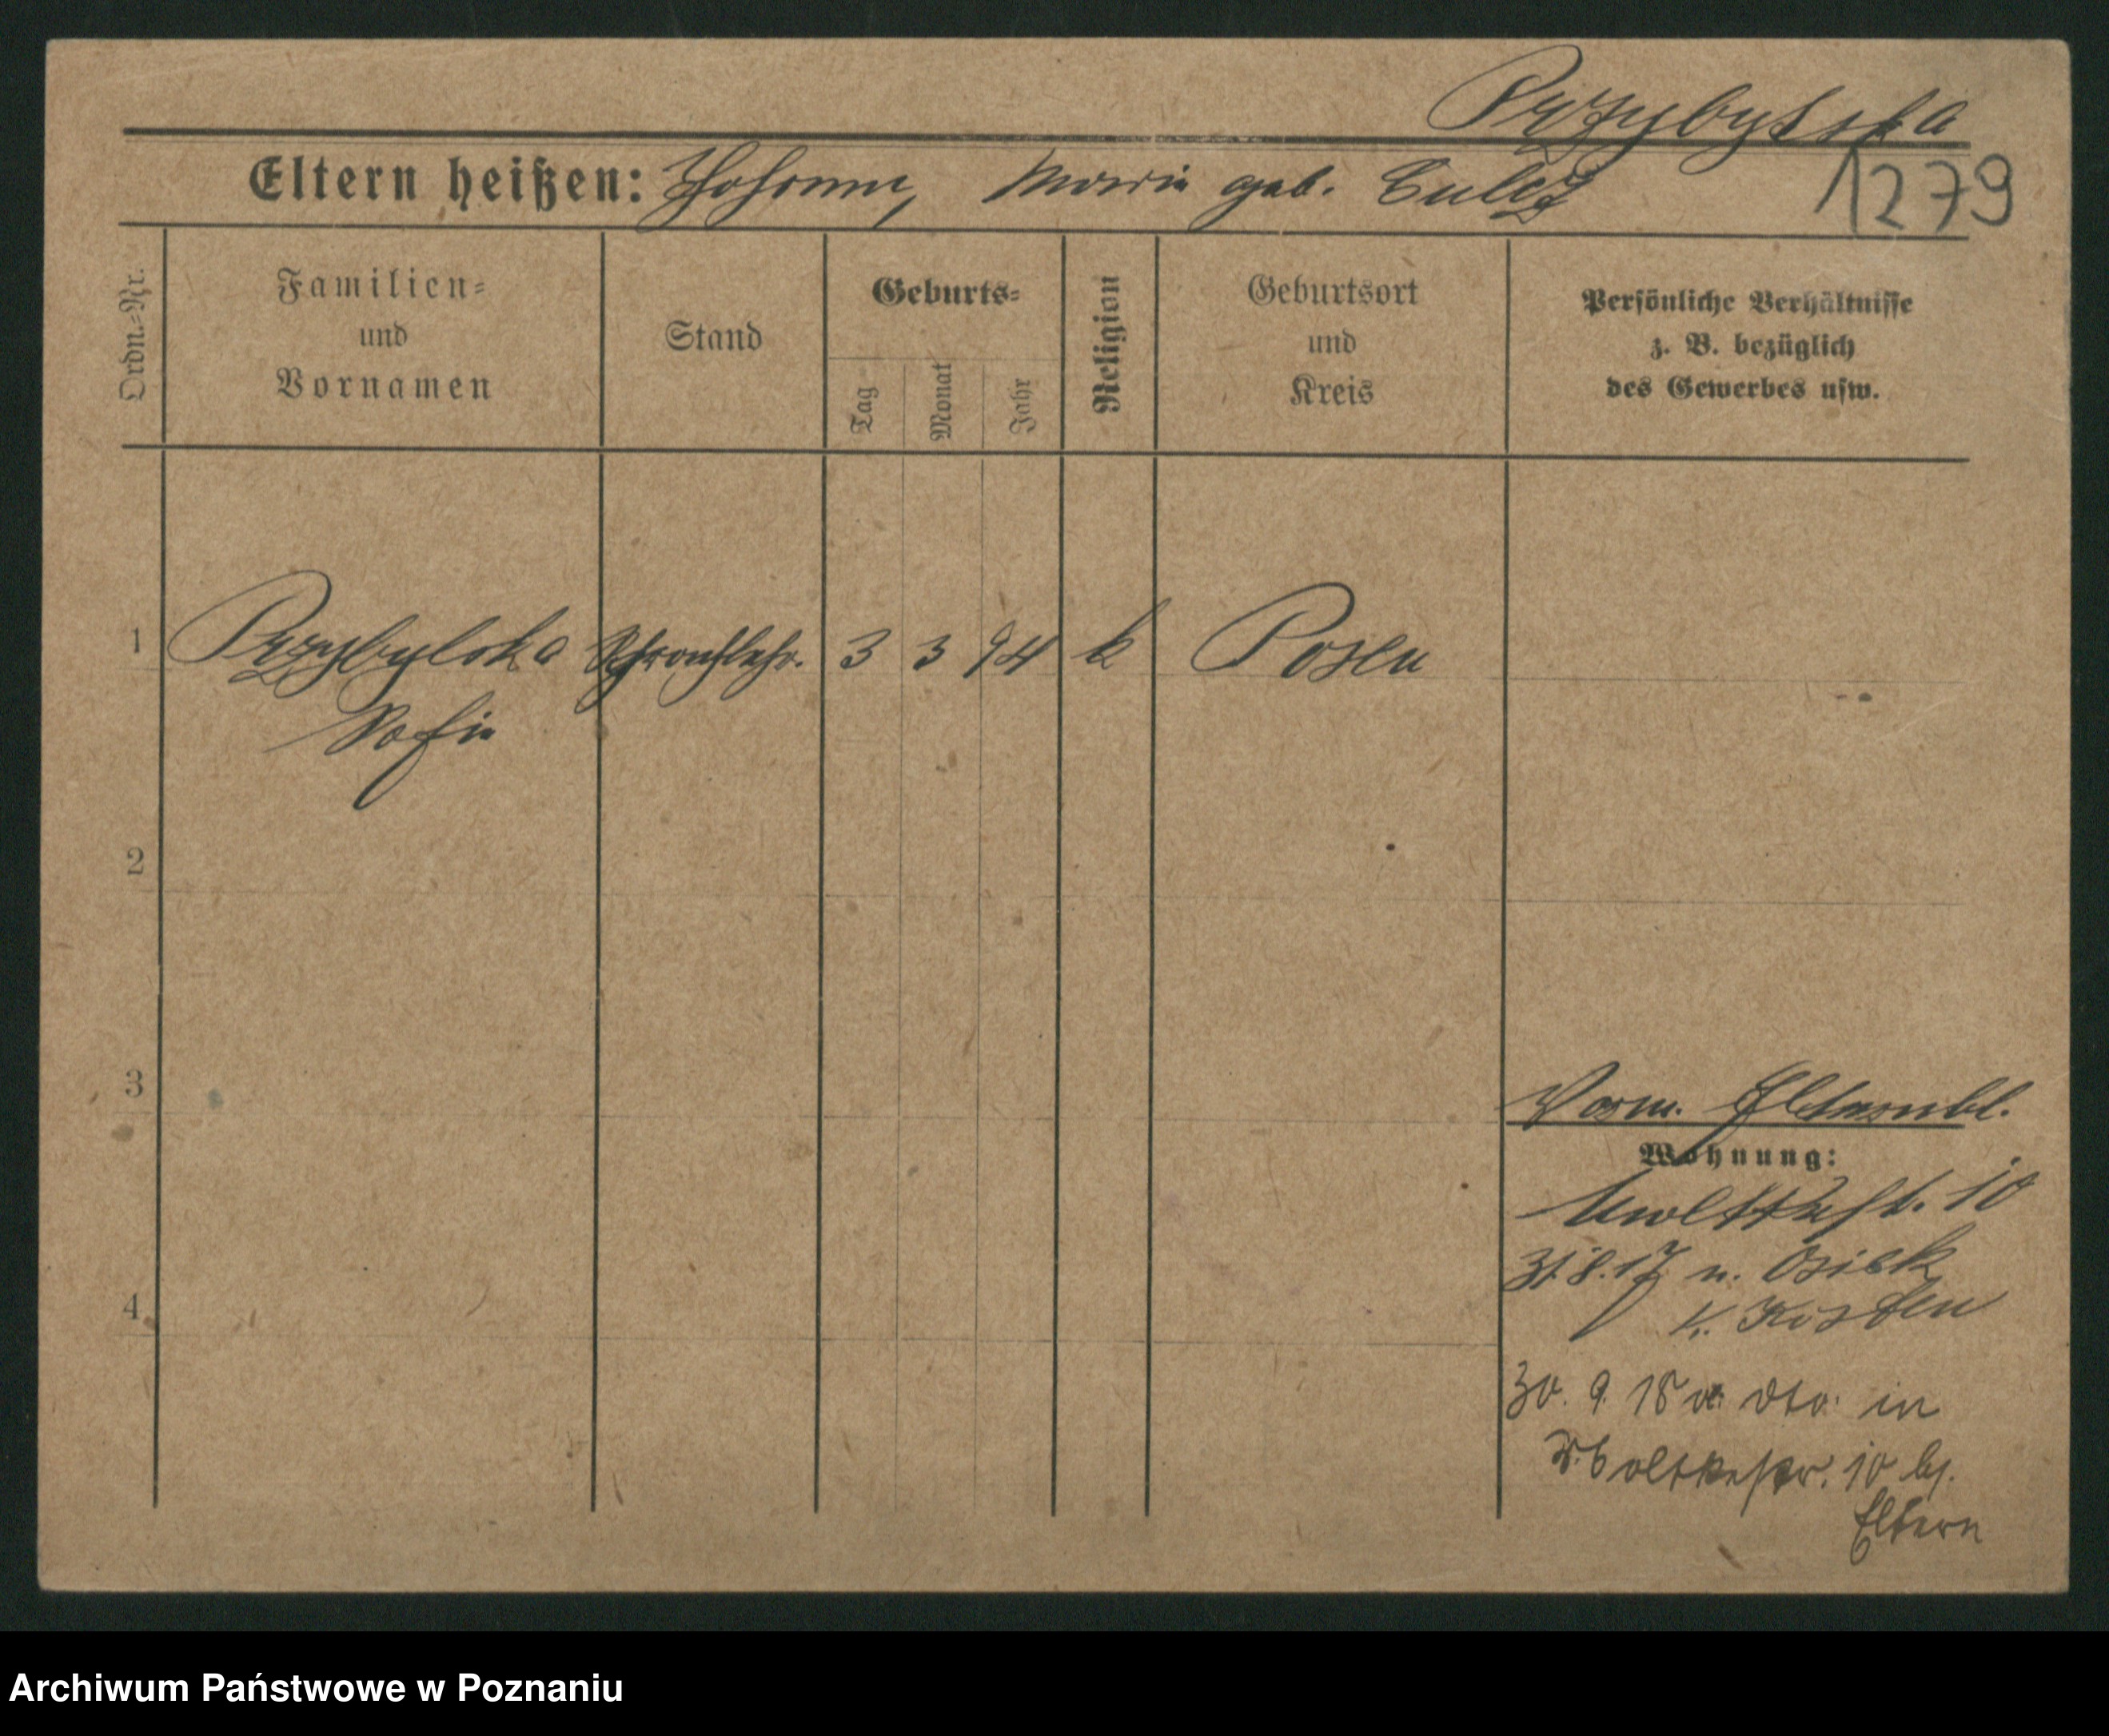 Przybylska
Eltern heißen: Johann, Maria geb. Culcz
1279
Ordn.=Nr.
Familien=
und
Vornamen
Stand
Geburts=
Tag
Monat
Jahr
Religion
Geburtsort
und
Kreis
Persönliche Verhältnisse
z. B. bezüglich
des Gewerbes usw.
1 Przybylska 3 3 94 k Posen
Sofie
2
3
Vorm. Elternbl.
Wohnung:
Moltkestr. 10
4
31.8.17 n. Osiek
K. Kosten
30. 9. 18 v. dto. in
Moltkestr. 10 bj.
Eltern
Archiwum Państwowe w Poznaniu